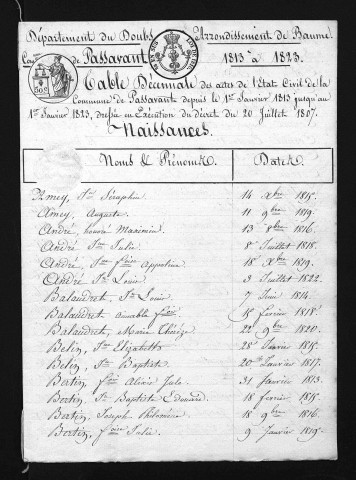 Département du Doubs Arrondissement de Baume
de Passavant 1813 à 1823.
Table Décennale des actes de l'Etat Civil de la
Commune de Passavant depuis le 1er Janvier 1813 jusqu'au
1er Janvier 1823, dressée en Exécution du décret du 20 Juillet 1807.
Naissances.
Noms & Prénoms. Dates.
Amey, Séraphin 14 Xbre 1815.
Amey, Auguste 11 9bre 1819.
André, honoré Maximin 13 8bre 1816.
André Julie 8 Juillet 1818.
André Appoline 18 Xbre 1819.
André Louis 3 Juillet 1822.
Balandret, Louis 7 Juin 1814.
Balandret aimable 15 fevrier 1818.
Balandret, Marie Thérèze 22 9bre 1820.
Belin, Elizabeth 28 Janvier 1815.
Belin, Baptiste 20 Janvier 1817.
Bertin, Alexis Jule 31 Janvier 1813.
Bertin, Baptiste Edouard 18 fevrier 1815.
Bertin, Joseph Philomène 18 9bre 1816.
Bertin, Julie 9 Janvier 1819.